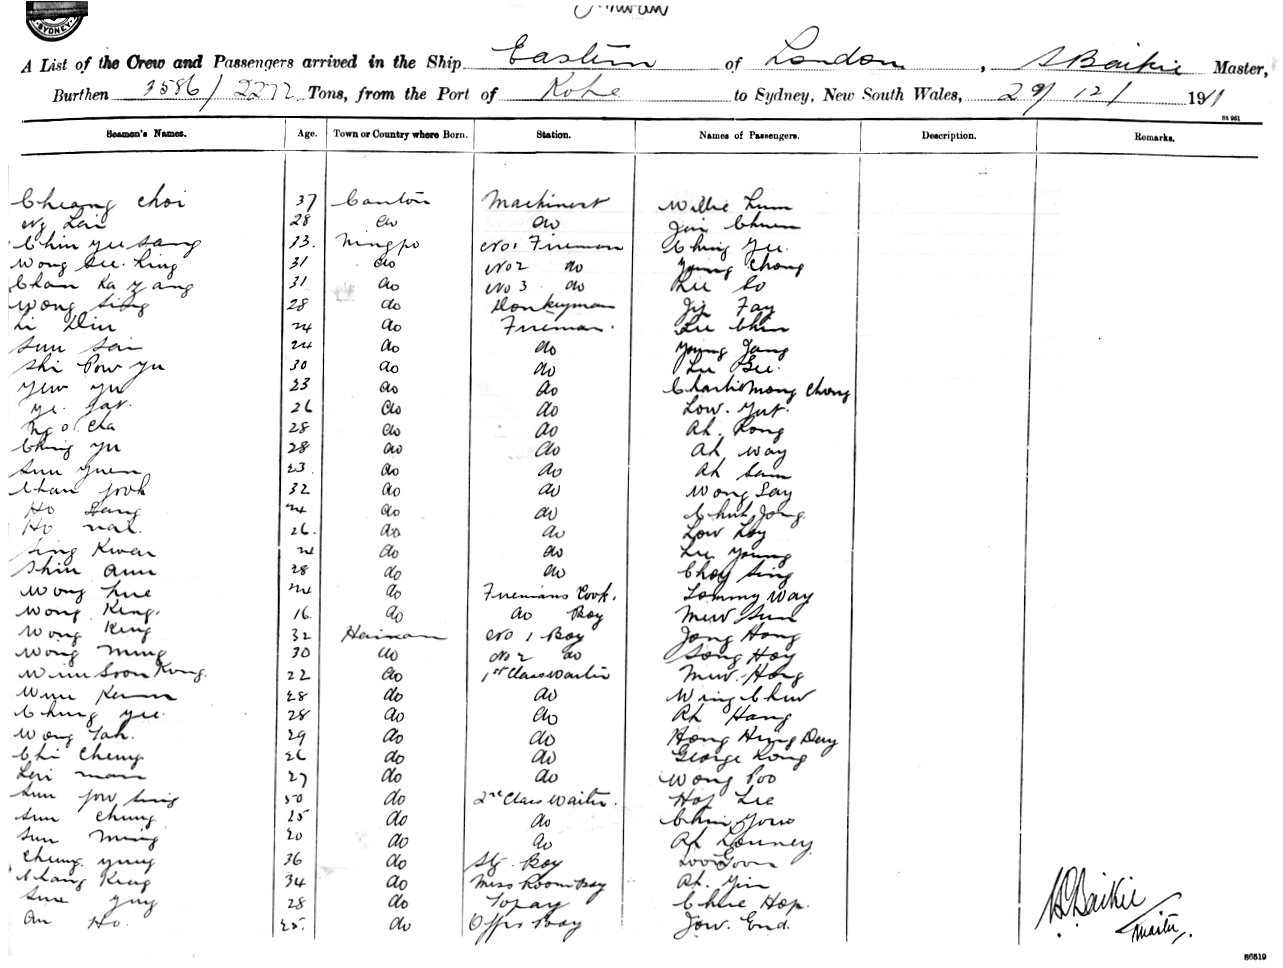 SYDNEY
A List of the Crew and Passengers arrived in the Ship Eastern of London, Baikie Master,
Burthen 3586/2272 Tons, from the Port of Kobe to Sydney, New South Wales, 29/12/1911
St 961
Seamen's Names. Age. Town or Country where Born. Station. Names of Passengers. Description. Remarks.
Cheang Choi 37 Canton Machinist Willie Lum
Ng Lai 28 do do Jin Chuen
Chin Yu Sang 33. Ningpo No 1 Fireman Ching Yee.
Wong See King 31 do No 2 do Young Chong
Chan Ka Yang 31 do No 3 do Lee So
Wong Sing 28 do Donkeyman Jip Fay
Li Din 24 do Fireman. Lee Chin
Sun Sai 24 do do Young Jang
Shi Pow Yu 30 do do Lee Gee
Yew Yu 23 do do Charlie Mong Chong
Ye. 26 do do Low. Yut.
Ngo Cha 28 do do Ah. Kong
Ching Yu 28 do do Ah Way
Sun Yuen 23. do do Ah Sam
Chan Fook 32 do do Wong Say
Ho Sang 24 do do Chut Jong
Ho 26. do do Low Loy
Sing Kwan 24 do do Lee Young
Shin Ann 28 do do Choy Sing
Wong Hue 24 do Firemans Cook. Tommy Way
Wong King. 16 do do Boy Mew Sun
Wong King 32 Hainan No 1 Boy Jong Hong
Wong Ming 30 do No 2 do Song Hoy
Win Soon Kong. 22 do 1st Class Waiter Mew. Hong
Win Kenn 28 do do Wing Chew
Ching Yee. 28 do do Ah Hang
Wong Tah. 29 do do Hong Hing Dey
Chi Cheng 26 do do George Kong
Leri Man 27 do do Wong Poo
Sun Yow Sing 30 do 2nd Class Waiter. Hop Lee
Sun Chung 25 do do Chin Yow
Sun Ming 20 do do Ah Louney
Cheng Yung 36 do Stg. Boy Loo Goon
Chang King 34 do Mess Room Boy Ah. Yin
Sue Yng 28 do Topay Chee Hop.
An Ho. 25. do Offrs Boy Jow. End.
Baikie
Master
86519